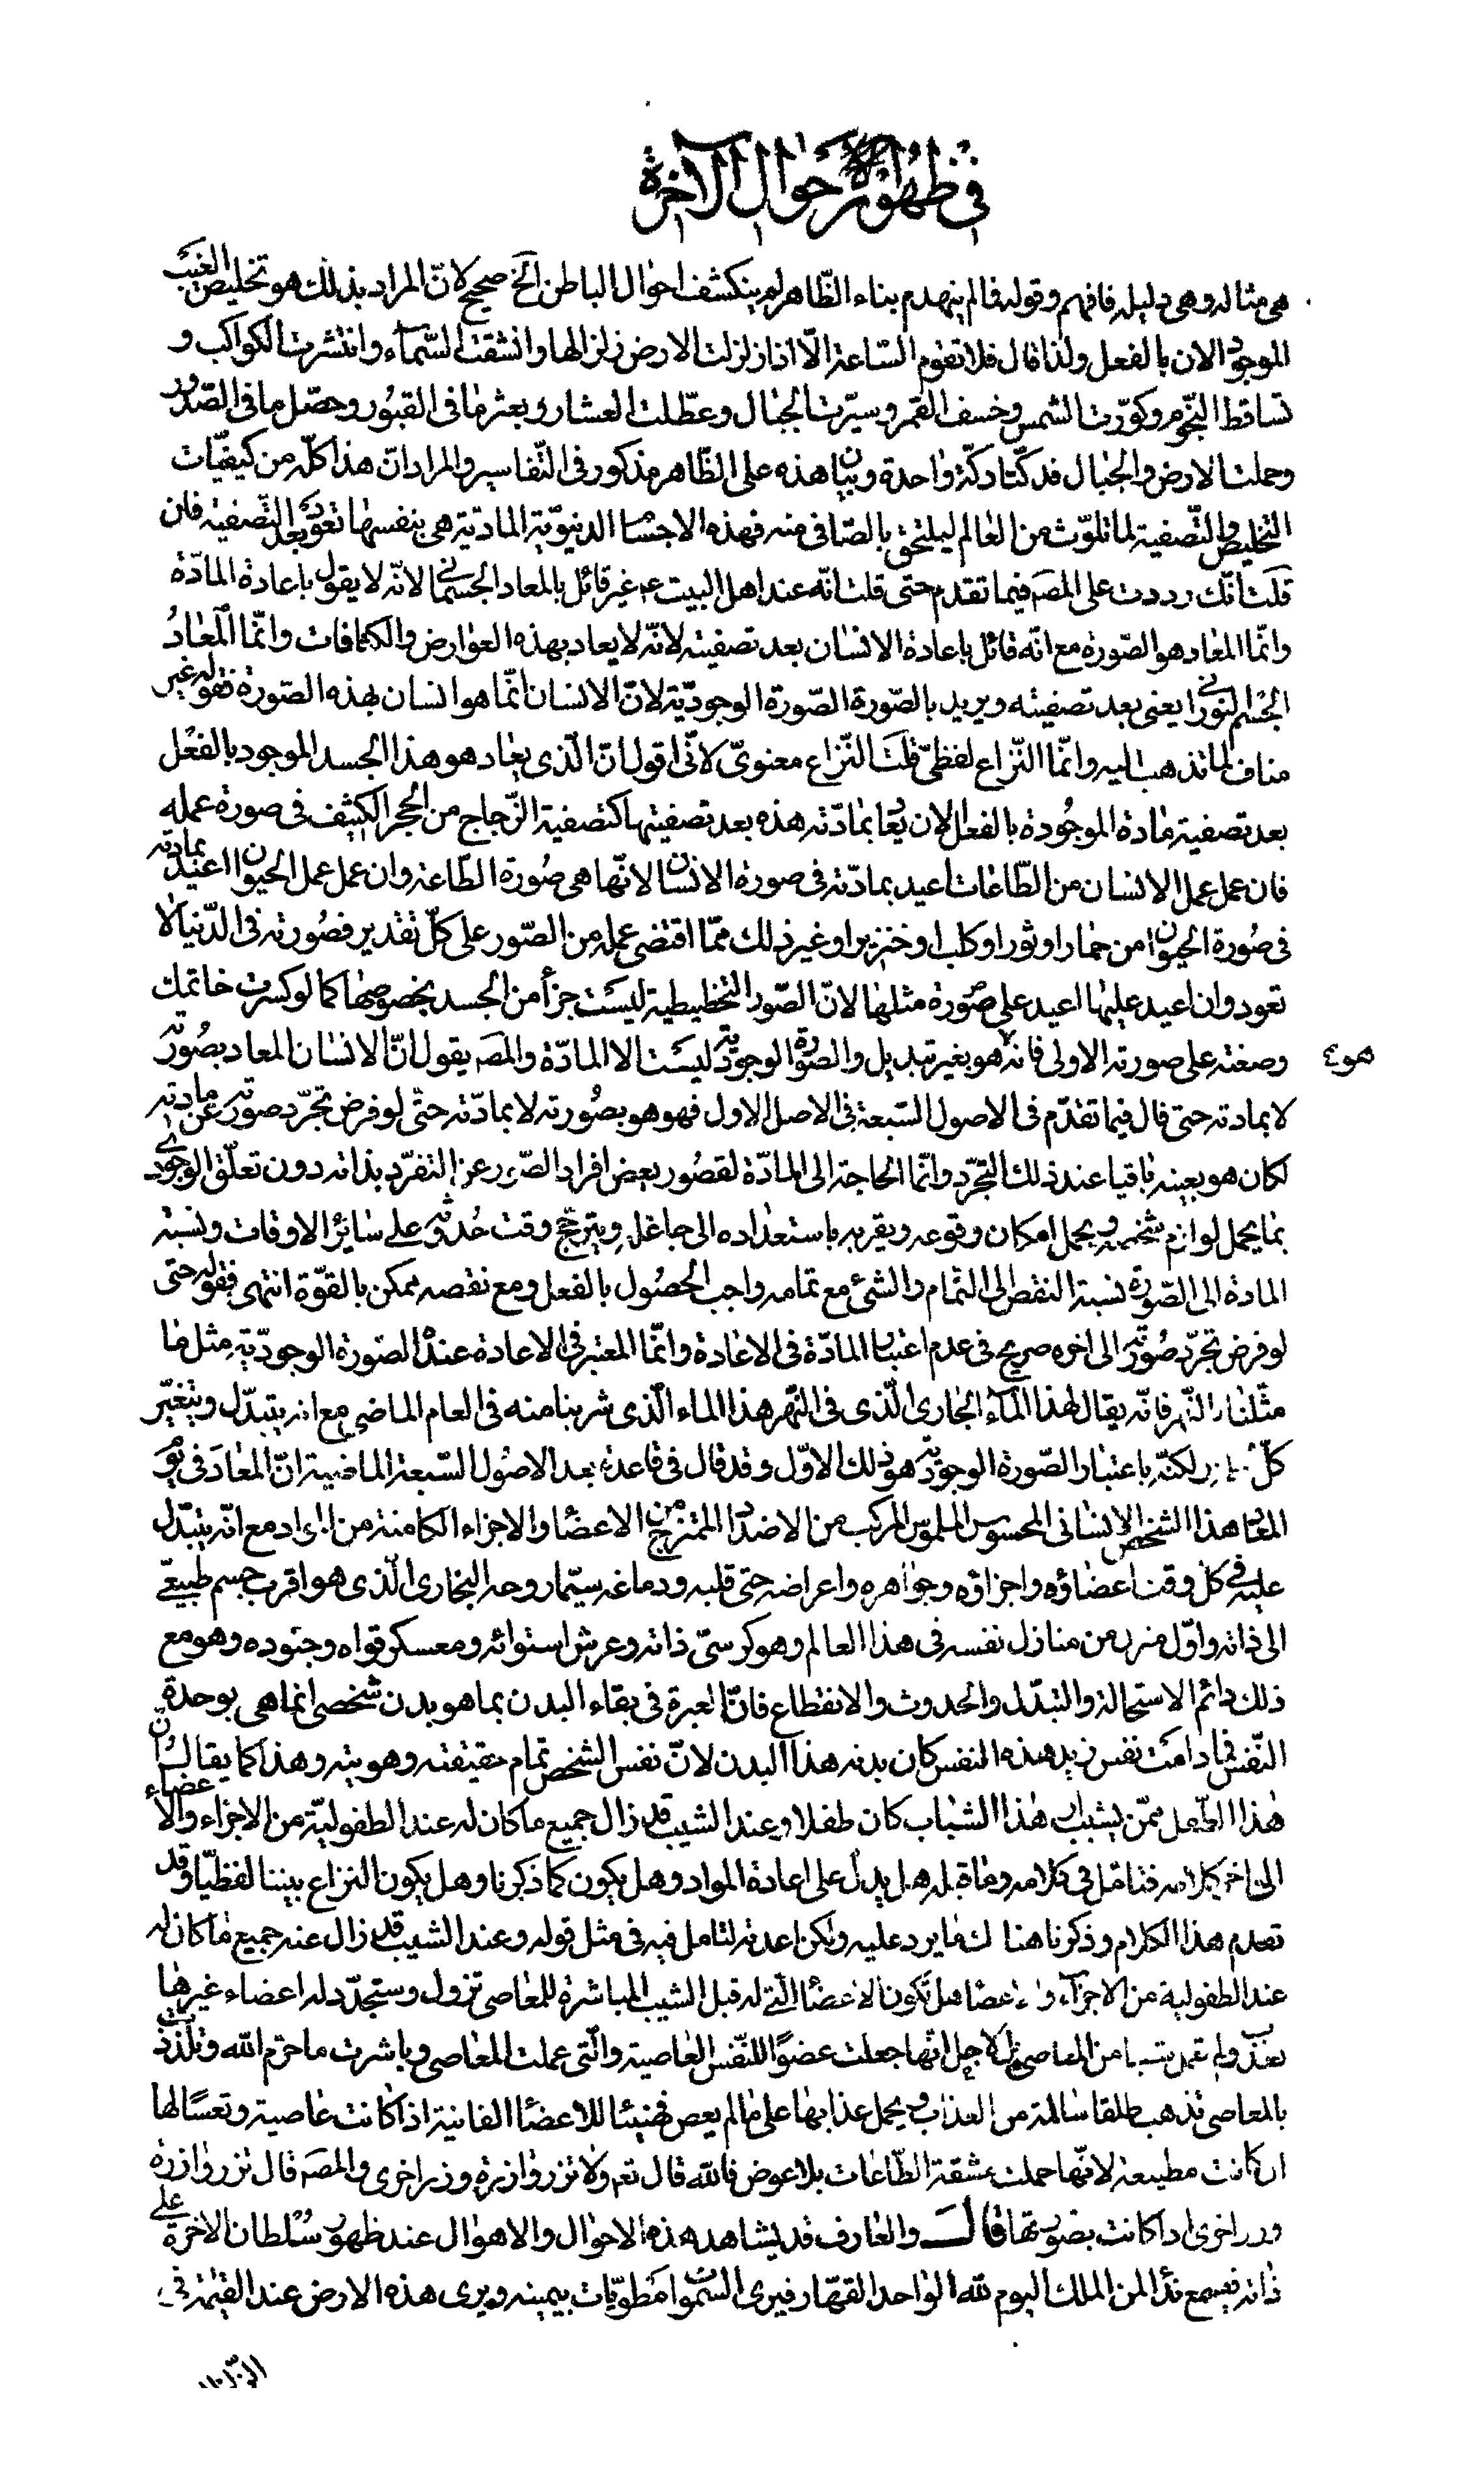 في ظهور احوال الآخرة
هي مثاله وهي دليله فافهم وقوله فما لم ينهدم بناء الظّاهر لم ينكشف احوال الباطن الخ صحيح لانّ المراد بذلك هو تخليص الغيب
الموجود الان بالفعل ولذا قال فلا تقوم السّاعة الّا اذا زلزلت الارض زلزالها وانشقت السّماء وانتثرت الكواكب و
تساقط النّجوم وكوّرت الشمس وخسف القمر وسيّرت الجبال وعطّلت العشار وبعثر ما فى القبور وحصّل ما فى الصّدور
وحملت الارض والجبال فدكّتا دكّة واحدة وبيان هذه على الظّاهر مذكور فى التّفاسير والمراد انّ هذا كلّه من كيفيّات
التخليص والتّصفية لما تلوّث من العالم ليلتحق بالصّافى منه فهذه الاجسام الدنيويّة المادّية هى بنفسها تعود بعد التّصفية فان
قلت انّك رددت على المصَه فيما تقدم حتى قلت انّه عند اهل البيت ع غير قائل بالمعاد الجسمانى لانّه لا يقول باعادة المادّة
وانّما المعاد هو الصّورة مع انّه قائل باعادة الانسان بعد تصفيته لانّه لا يعاد بهذه العوارض والكثافات وانّما المعاد
الجسم النورانى يعنى بعد تصفيته ويريد بالصّورة الصّورة الوجوديّة لانّ الانسان انّما هو انسان بهذه الصّورة فقوله غير
مناف لما تذهب اليه وانّما النّزاع لفظىّ قلت النّزاع معنوىّ لانّى اقول انّ الّذى يعاد هو هذا الجسد الموجود بالفعل
بعد تصفية مادة الموجودة بالفعل الان يعاد بمادّته هذه بعد تصفيتها كتصفية الزّجاج من الحجر الكثيف فى صورة عمله
فان عمل عمل الانسان من الطّاعات اعيد بمادّته فى صورة الانسان لانّها هى صورة الطّاعة وان عمل عمل الحيوان اعيد بمادته
فى صورة الحيوان من حمار او ثور او كلب او خنزير او غير ذلك ممّا اقتضى عمله من الصّور على كلّ تقدير فصورته فى الدّنيا لا
تعود وان اعيد عليها اعيد على صورة مثلها لانّ الصّور التخطيطية ليست جزأ من الجسد بخصوصها كما لو كسرت خاتمك
وصغته على صورته الاولى فانه هو بغير تبديل والصّورة الوجوديّة ليست الا المادّة والمصَه يقول انّ الانسان المعاد بصورته هو ع
لا بمادته حتى قال فيما تقدّم فى الاصول السّبعة فى الاصل الاول فهو هو بصورته لا بمادّته حتّى لو فرض تجرّد صورته عن مادته
لكان هو بعينه باقيا عند ذلك التجرّد وانّما الحاجة الى المادّة لقصور بعض افراد الصّور عن التفرّد بذاته دون تعلّق الوجودى
بما يحمل لوازم شخصه ويحمل امكان وقوعه ويقربه باستعداده الى جاعله ويترجّح وقت حدوثه على سائر الاوقات ونسبة
المادة الى الصّورة نسبة النقص الى التّمام والشئ مع تمامه واجب الحصول بالفعل ومع نقصه ممكن بالقوّة انتهى فقوله حتى
لو فرض تجرّد صورته الى اخره صريح فى عدم اعتبار المادّة فى الاعادة وانّما المعتبر فى الاعادة عنده الصّورة الوجوديّة مثل ما
مثّلنا بالنّهر فانّه يقال لهذا الماء الجارى الّذى فى النّهر هذا الماء الّذى شربنا منه فى العام الماضى مع انه يتبدّل ويتغيّر
كلّ لكنّه باعتبار الصّورة الوجوديّة هو ذلك الاوّل وقد قال فى قاعدة بعد الاصول السّبعة الماضية انّ المعاد فى يوم
المعاد هذا الشخص الانسانى المحسوس الملموس المركب من الاضداد الممتزج من الاعضاء والاجزاء الكائنة من المواد مع انّه يتبدّل
عليه فى كل وقت اعضاؤه واجزاؤه وجواهره واعراضه حتى قلبه ودماغه سيّما روحه البخارى الّذى هو اقرب جسم طبيعىّ
الى ذاته واوّل منزل من منازل نفسه فى هذا العالم وهو كرسىّ ذاته وعرش استوائه ومعسكر قواه وجنوده وهو مع
ذلك دائم الاستحالة والتبدّل والحدوث والانقطاع فانّ العبرة فى بقاء البدن بما هو بدن شخصى انما هى بوحدة
النّفس فما دامت نفس زيد هذه النفس كان بدنه هذا البدن لانّ نفس الشخص تمام حقيقته وهويته وهذا كما يقال انّ
هذا الطّفل ممّن يشيب او هذا الشباب كان طفلا وعند الشيب قد زال جميع ما كان له عند الطفوليّة من الاجزاء والاعضاء
الى اخر كلامه فتامّل فى كلامه وما قبله هل يدلّ على اعادة المواد وهل يكون كما ذكرنا وهل يكون النزاع بيننا لفظيّا وقد
تقدم هذا الكلام وذكرنا هناك ما يرد عليه ولكن اعدته لتتامل فيه فى مثل قوله وعند الشيب قد زال عنه جميع ما كان له
عند الطفولية من الاجزاء والاعضاء هل تكون الاعضاء الّتى له قبل الشيب المباشرة للمعاصى تزول وستجدّد له اعضاء غيرها
تعذّب ولم تعمل شيئا من المعاصى بل لاجل انّها جعلت عضوا للنّفس العاصية والّتى عملت المعاصى وباشرت ما حرّم الله وتلذّذت
بالمعاصى تذهب طلقا سالمة من العذاب ويحمل عذابها على ما لم يعص فهنيئا للاعضاء الفانية اذا كانت عاصية وتعسا لها
ان كانت مطيعة لانّها حملت مشقة الطّاعات بلا عوض فالله قال تعم ولا تزر وازرة وزر اخرى والمصَه قال تزر وازرة
وزر اخرى اذا كانت بصورتها قال والعارف قد يشاهد هذه الاحوال والاهوال عند ظهور سلطان الاخرة على
ذاته فيسمع نداء لمن الملك اليوم لله الواحد القهّار فيرى السّموات مطويّات بيمينه ويرى هذه الارض عند القيمة فى